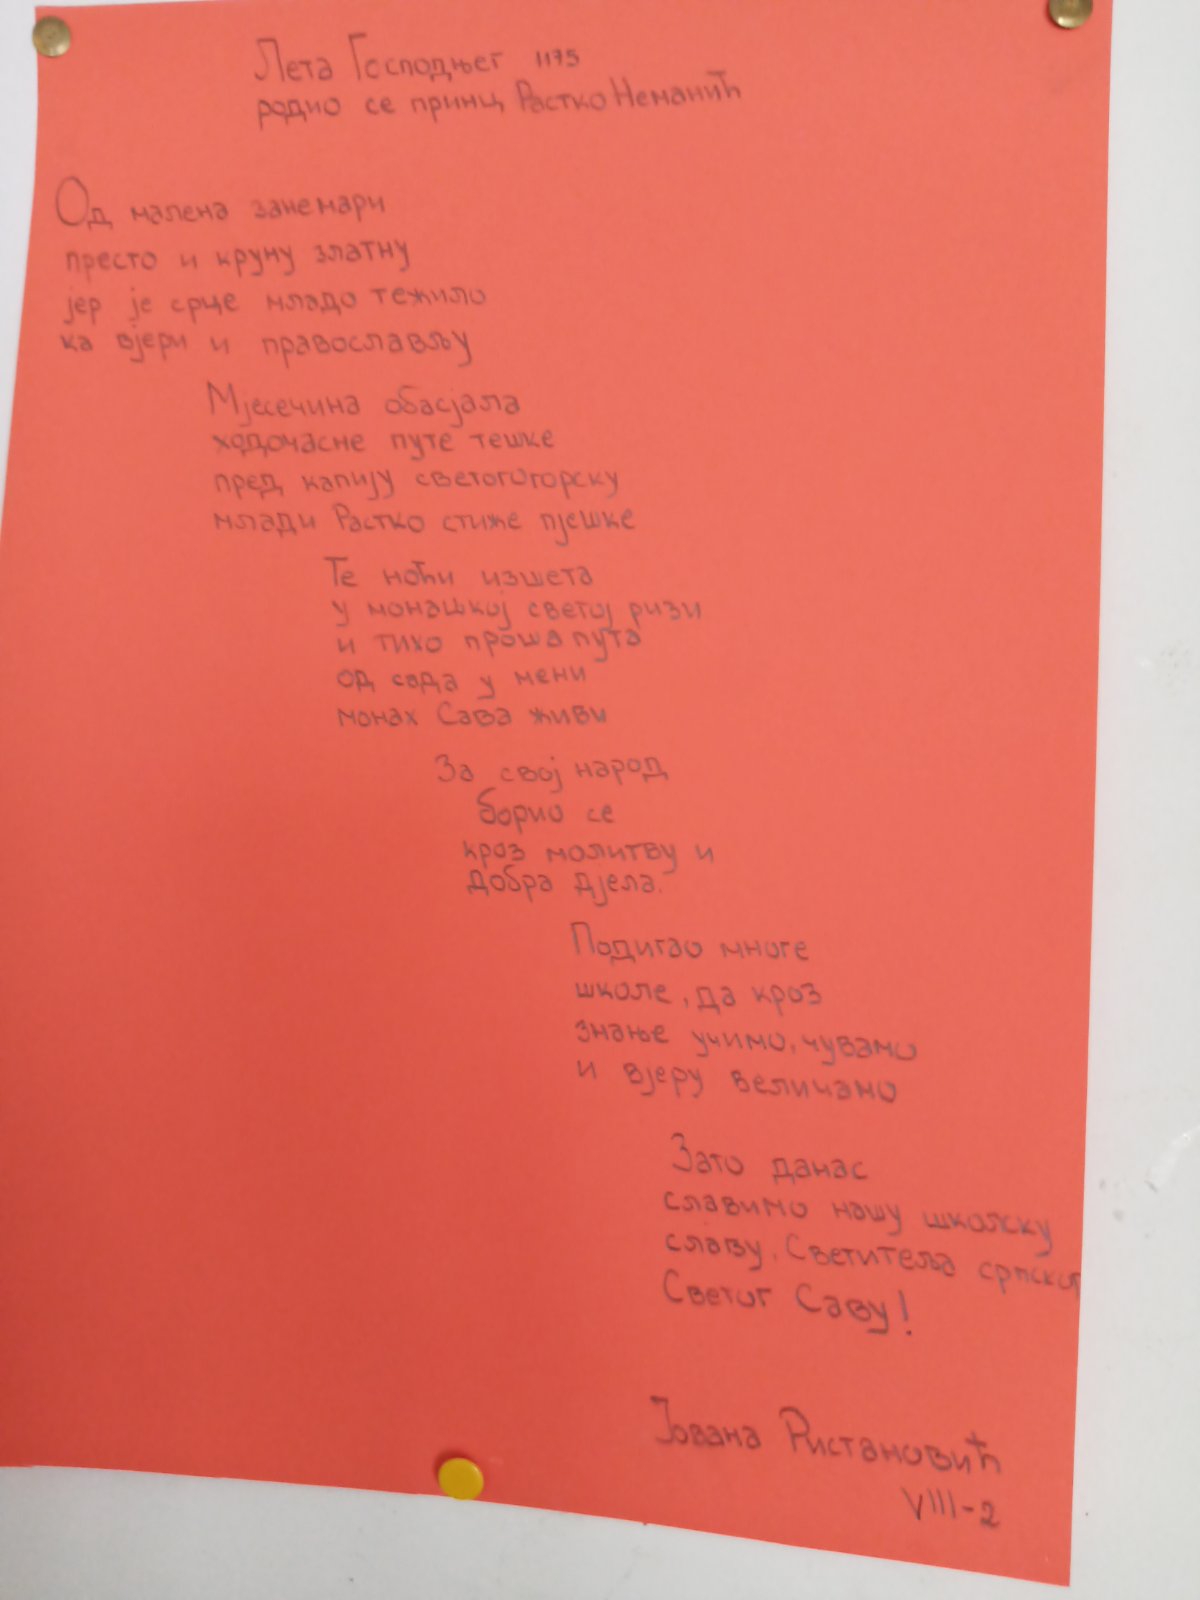 Лета Господњег 1175
родио се принц Растко Неманић
Од малена занемари
престо и круну златну
јер је срце младо тежило
ка вјери и православљу
Мјесечина обасјала
ходочасне путе тешке
пред капију светогогорску
млади Растко стиже пјешке
Те ноћи изшета
у монашкој светој ризи
и тихо прошапута
од сада у мени
монах Сава живи
За свој народ
борио се
кроз молитву и
добра дјела.
Подигао многе
школе, да кроз
знање учимо, чувамо
и вјеру величамо
Зато данас
славимо нашу школску
славу. Светитеља српског
Светог Саву!
Јована Ристановић
VIII-2